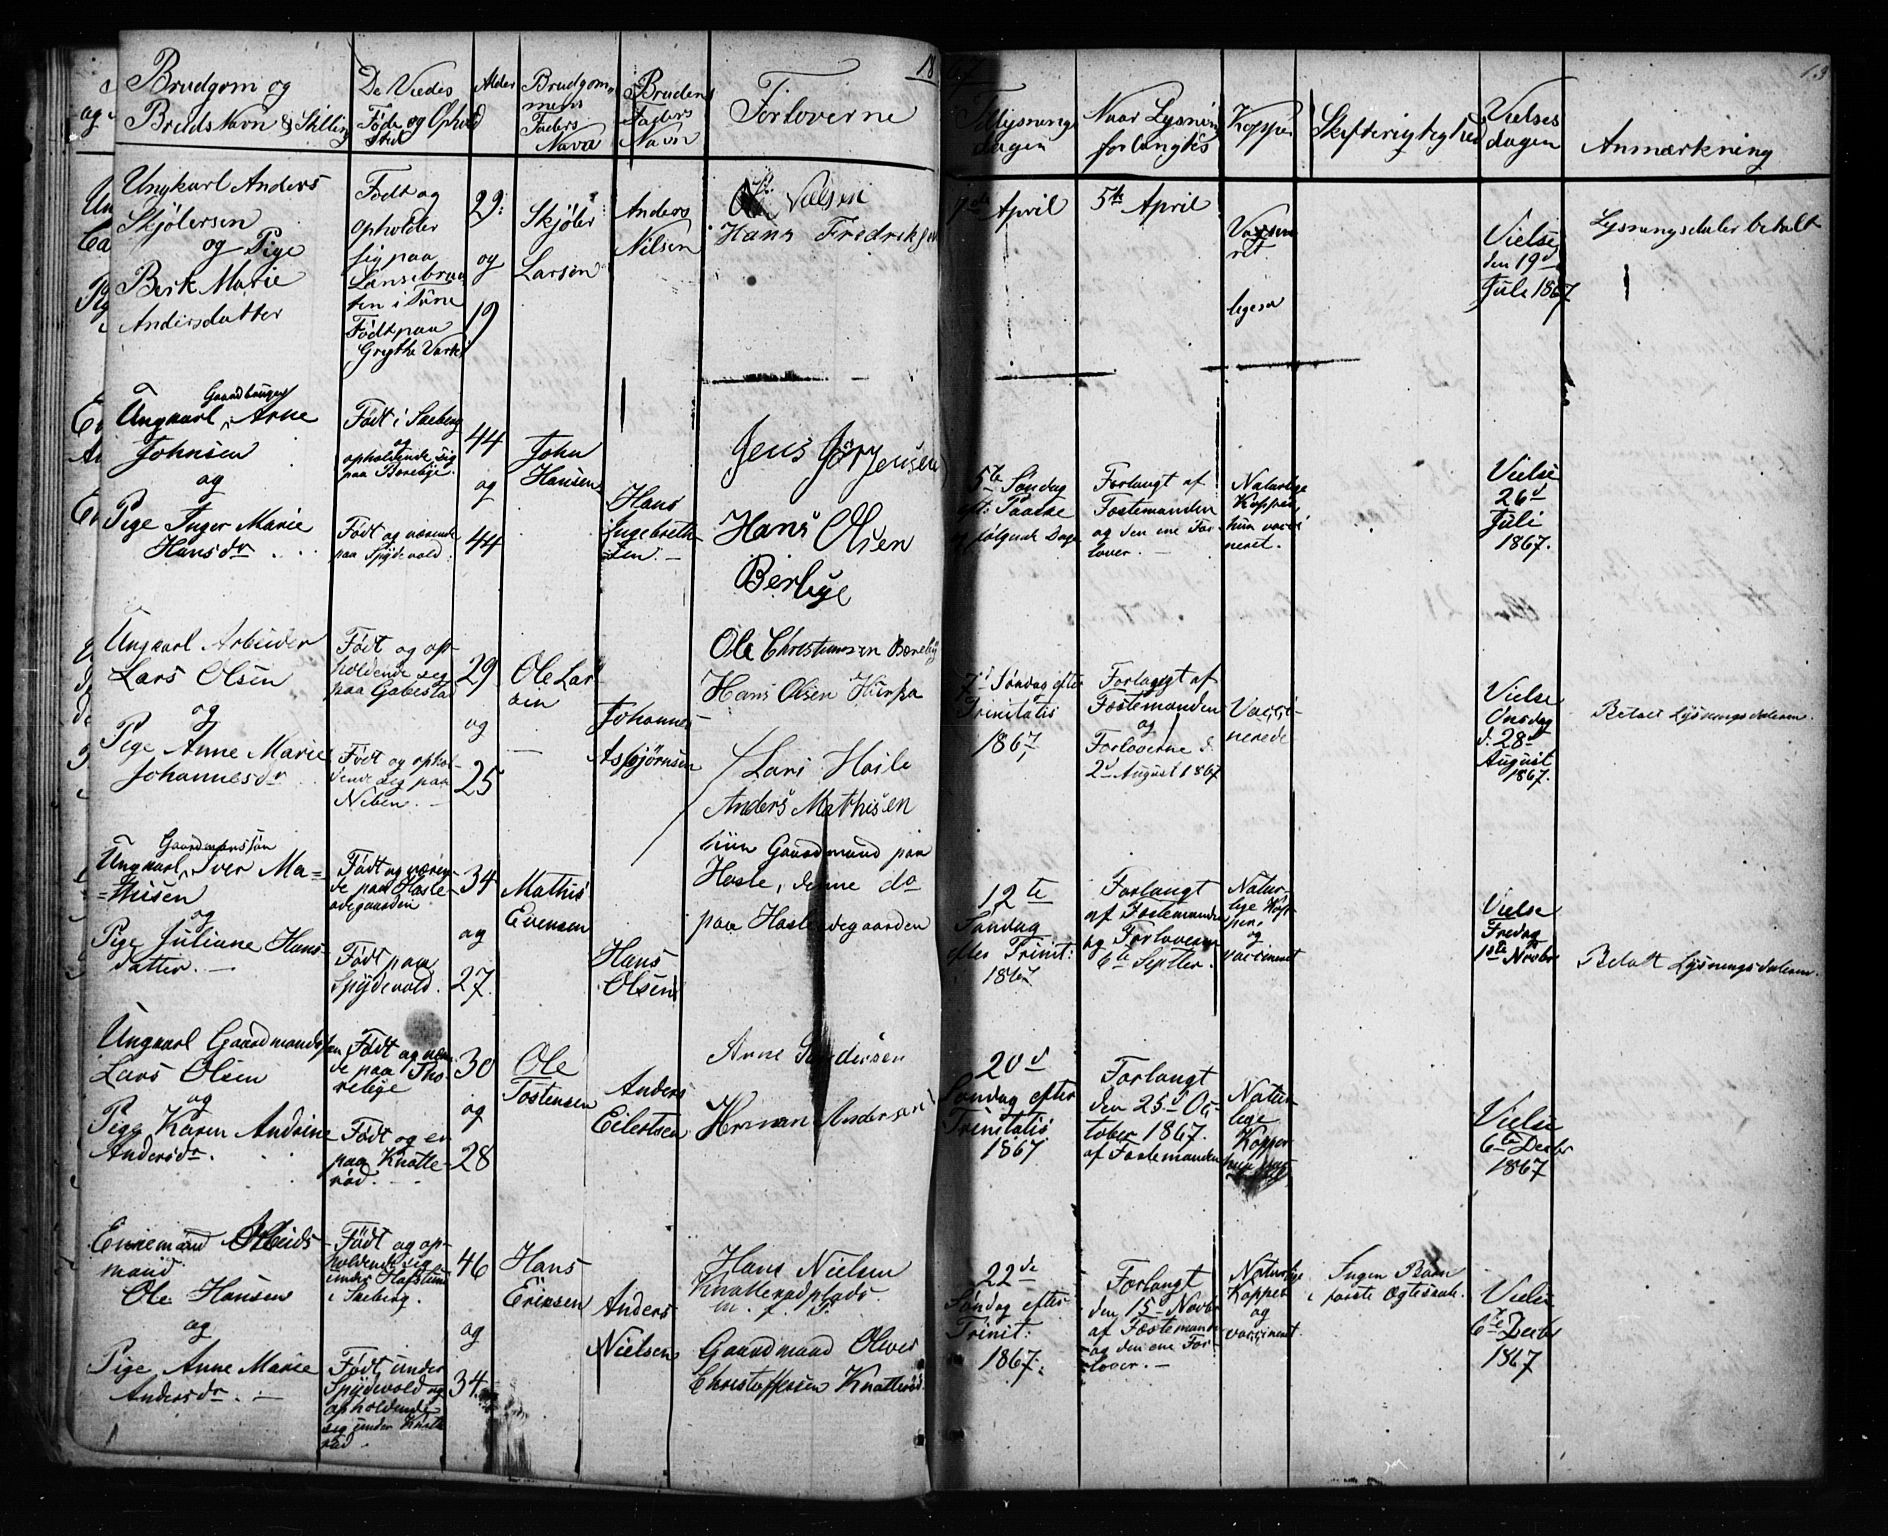 18 67
13
Brudgom og
Bruds Navn & Stilling
De Viedes
Føde og Ophold
Sted
Alder
Brudgom-
mens
Faders
Navn
Brudens
Faders
Navn
Forloverne
Tillysnings
dagen
Naar Lysning
forlangtes
Kopper
Skifterigtighed
Vielses
dagen
Anmærkning
Ungkarl Anders
Skjølersen
og Pige
Berk Marie
Andersdatter
Født og
opholder
sig paa
i Tune
Født paa
29
og
19
Skjøler
Larsen
Anders
Nilsen
Nielsen
Hans Fredriksen
April
5te April
Vaksene
ret
ligesa
Vielse
den 19de
Juli 1867
Lysningsdaler betalt
Gaardbruger
Ungkarl, Arne
Johnsen
og
Pige Inger Marie
Hansdr
Født i Skeberg
og
opholdende sig
paa Borebye.
Født og værende
paa Spydevold.
44
og
44
John
Hansen
Hans
Ingebreth-
sen.
Jens Jørgensen
Hans Olsen
Berbye
5te Søndag
eft: Paaske
følgende Dage
Forlangt af
Fostemanden
og den ene For-
lover.
Naturlige
Kopper,
hun vacci
neret.
Vielse
26d
Juli
1867.
Ungkarl Arbeider
Lars Olsen
og
Pige Anne Marie
Johannesdr
Født og op-
holdende sig
paa Gabestad
Født og ophol-
dende sig paa
Neben.
29
og
25
Ole Lar
sen
Johannes
Asbjørnsen
Ole Christiansen Boreby
Hans Olsen
7d Søndag efter
Trinitatis
1867
Forlangt af
Fostemanden
og
Forloverne d.
2d August 1867
Vacci-
nerede
Vielse
Onsdag
d. 28d
August
1867.
Betalt Lysningsdaleren
Lars Hasle
Anders Mathisen
hiin Gaardmand paa
Hasle, denne do
paa Hasleødegaarden
Gaardmandssøn
Ungkarl, Iver Ma-
thisen
og
Pige Juliane Hans
datter.
Født og væren-
de paa Hasle-
ødegaarden
Født paa
Spydevold.
34
og
27
Mathis
Evensen
Hans
Olsen
12te
Søndag
efter Trinit:
1867
Forlangt
af Fostemanden
og Forloveren
6te Septbr.
Natur-
lige Kop-
pere
og
vaccineret
Vielse
Fredag
1ste Novbr
Betalt Lysningsdaleren.
Ungkarl Gaardmandssøn
Lars Olsen
og
Pige Karen Andrine
Andersdr.
Født og væren
de paa Tho-
relige
Født og er
paa Knatte-
rød.
30
og
28
Ole
Tostensen
Anders
Eilertsen
Arne Andersen
Herman Andersen
20d
Søndag efter
Trinitatis
1867
Forlangt
den 25d Oc-
tober 1867.
af Fostemanden
Natur-
lige
Kopper
Vielse
6te Decbr
1867
Enkemand Arbeids-
mand
Ole Hansen
og
Pige Anne Marie
Andersdr.
Født og op-
holdende sig
under Hafslund
i Skeberg.
Født under
Spydevold og
opholdende
sig under Knatte
rød.
46
og
34
Hans
Eriksen
Anders
Nielsen
Hans Nielsen
Knatterødplads.
m. f. P.
Gaardmand Oliver
Christoffersen Knatterød
22de
Søndag efter
Trinit:
1867.
Forlangt
den 15d Novbr
af Fostemanden
og den ene For-
lover.
Naturlige
Kopper
og
vaccineret
Ingen Børn
i første Ægteskab.
Vielse
6te Decbr
1867